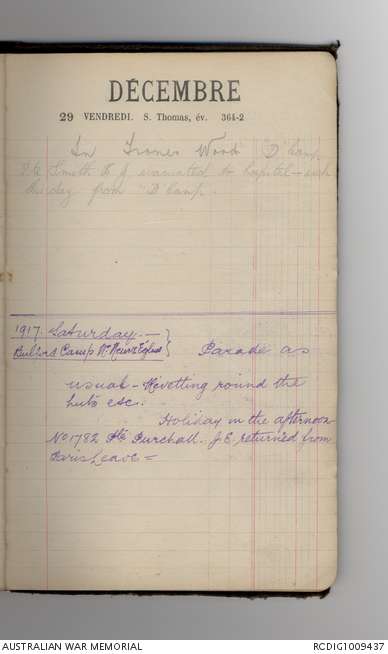 DÉCEMBRE
29 VENDREDI. S. Thomas, év. 364-2
In Trones Wood "D" Camp
Pte Smith R J evacuated to hospital - sick
this day from "D" Camp.
1917. Saturday -
Bulford Camp Nr Neuve Eglise } Parade as
usual - Revetting round the
huts etc.
Holiday in the afternoon
No 1782 Pte Purchall. J.E. returned from
Paris Leave =
AUSTRALIAN WAR MEMORIAL
RCDIG1009437